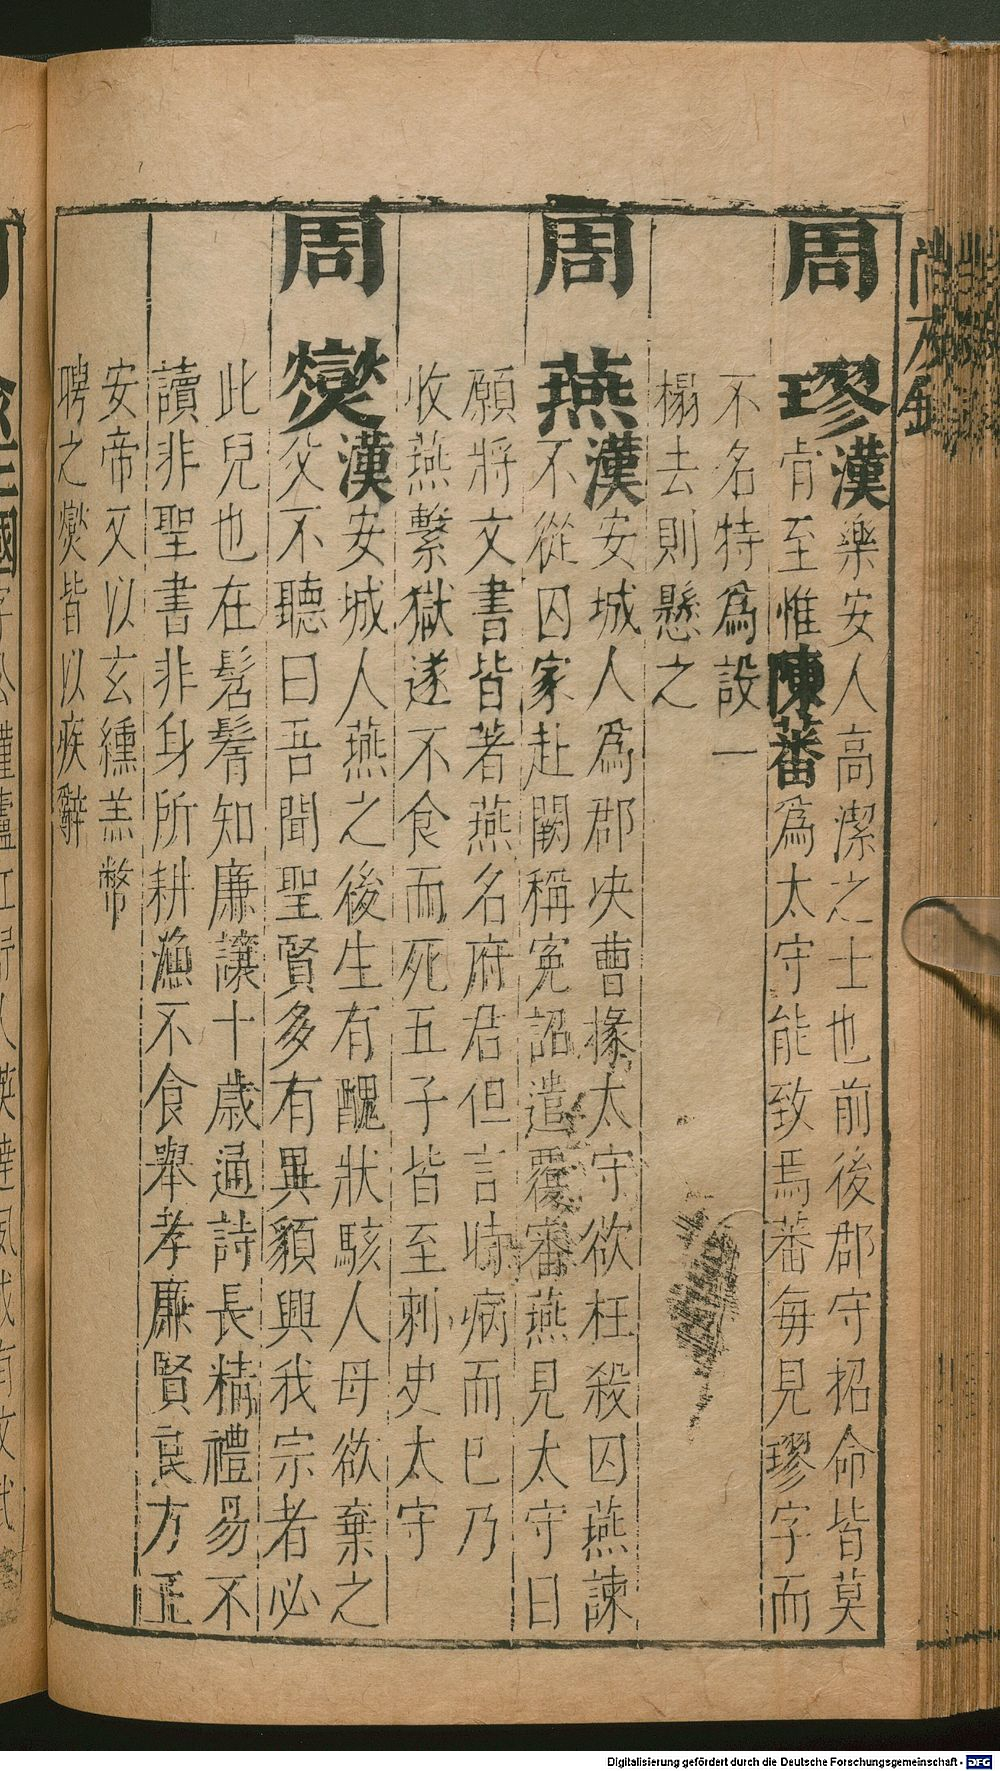 周璆漢樂安人高潔之士也前後郡守招命皆莫
肯至惟陳蕃爲太守能致焉蕃每見璆字而
不名特爲設一
榻去則懸之
周燕漢安城人爲郡決曹掾太守欲枉殺囚燕諫
不從囚家赴闕稱冤詔遣覆審燕見太守曰
願將文書皆著燕名府君但言時病而已乃
收燕繫獄遂不食而死五子皆至刺史太守
周燮漢安城人燕之後生有醜狀駭人母欲棄之
父不聽曰吾聞聖賢多有異貌興我宗者必
此兒也在髫髫知廉讓十歲通詩長精禮易不
讀非聖書非身所耕漁不食舉孝廉賢良方正
安帝又以玄纁羔幣
聘之燮皆以疾辭
Digitalisierung gefördert durch die Deutsche Forschungsgemeinschaft - DFG